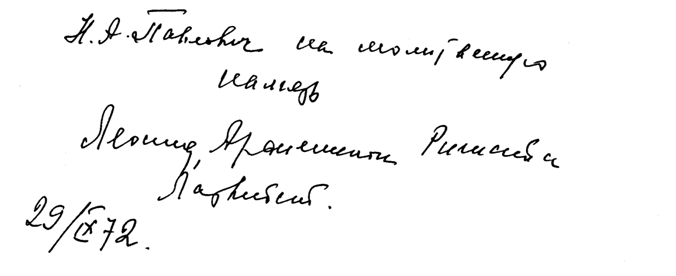 Н. А. Павлович на молитвенную
память
Леонид, Архиепископ Рижский и
Латвийский.
29/IX 72.